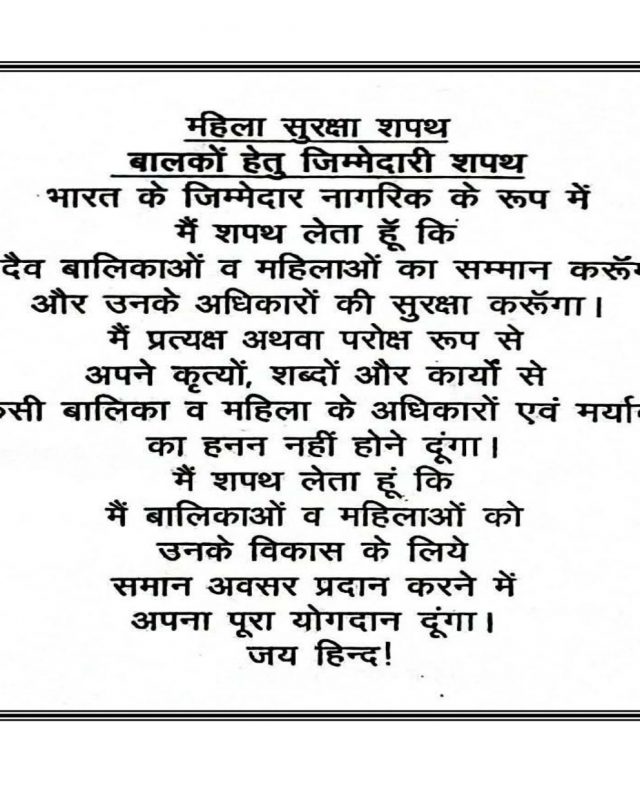 महिला सुरक्षा शपथ
बालकों हेतु जिम्मेदारी शपथ
भारत के जिम्मेदार नागरिक के रूप में
मैं शपथ लेता हूॅ कि
दैव बालिकाओं व महिलाओं का सम्मान करूॅग
और उनके अधिकारों की सुरक्षा करूॅगा।
मैं प्रत्यक्ष अथवा परोक्ष रूप से
अपने कृत्यों, शब्दों और कार्यो से
सी बालिका व महिला के अधिकारों एवं मर्याद
का हनन नहीं होने दूंगा।
मैं शपथ लेता हूं कि
मैं बालिकाओं व महिलाओं को
उनके विकास के लिये
समान अवसर प्रदान करने में
अपना पूरा योगदान दूंगा।
जय हिन्द!